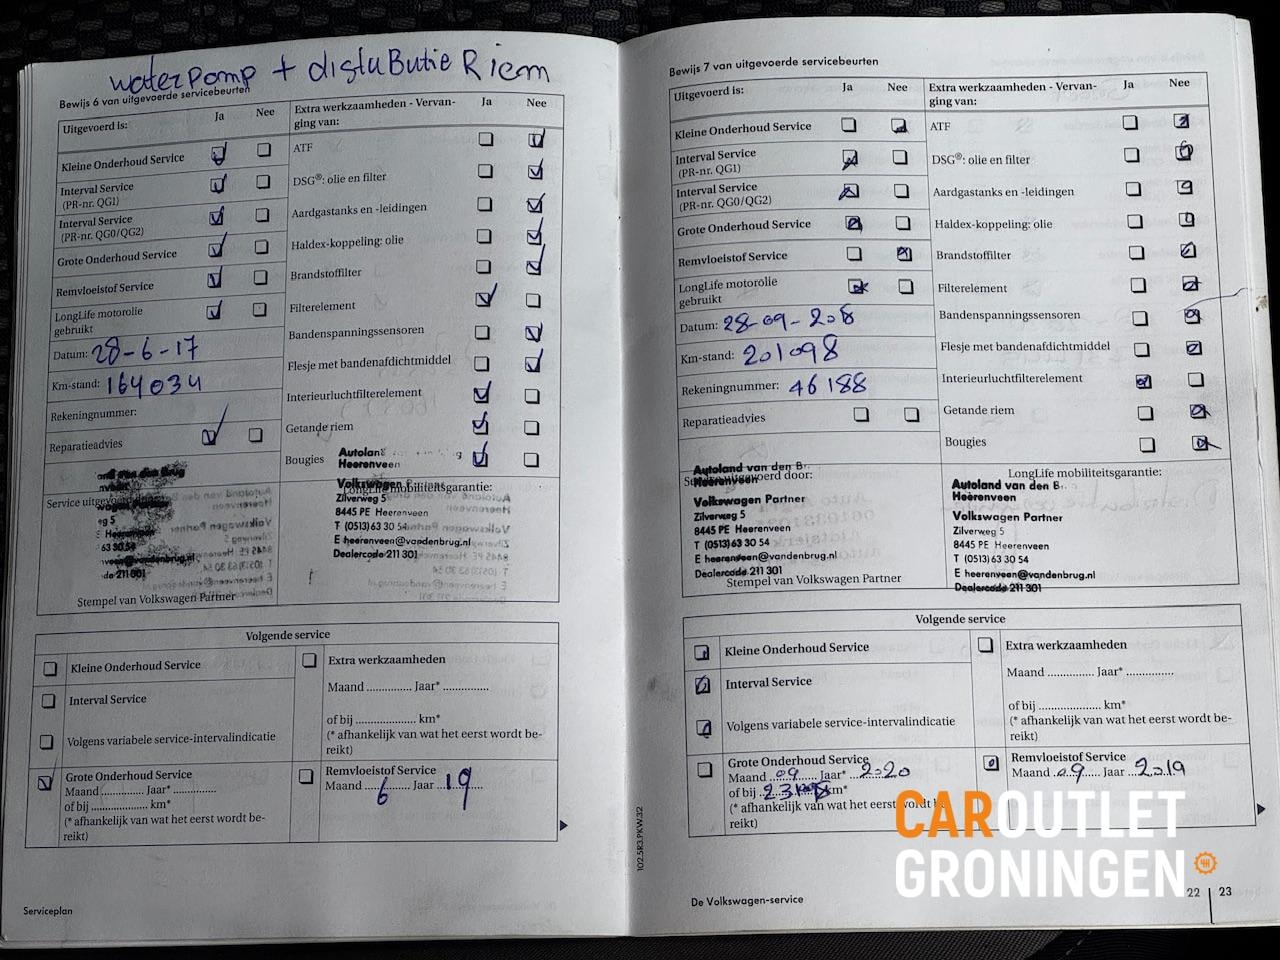 waterpomp + distuButie Riem
Bewijs 6 van uitgevoerde servicebeurten
Uitgevoerd is:
Ja
Nee
Kleine Onderhoud Service
Interval Service
(PR-nr. QG1)
Interval Service
(PR-nr. QG0/QG2)
Grote Onderhoud Service
Remvloeistof Service
LongLife motorolie
gebruikt
Datum: 28-6-17
Km-stand: 164034
Rekeningnummer:
Reparatieadvies
Extra werkzaamheden - Vervan-
ging van:
Ja
Nee
ATF
DSG®: olie en filter
Aardgastanks en -leidingen
Haldex-koppeling: olie
Brandstoffilter
Filterelement
Bandenspanningssensoren
Flesje met bandenafdichtmiddel
Interieurluchtfilterelement
Getande riem
Bougies
Service uitgevoerd
Stempel van Volkswagen Partner
Heerenveen
Zilverweg 5
8445 PE Heerenveen
T (0513) 63 30 54
E heerenveen@vandenbrug.nl
Dealercode 211 301
Volgende service
Kleine Onderhoud Service
Interval Service
Volgens variabele service-intervalindicatie
Grote Onderhoud Service
Maand .............. Jaar* ...............
of bij .................... km*
(* afhankelijk van wat het eerst wordt be-
reikt)
Extra werkzaamheden
Maand .............. Jaar* ...............
of bij .................... km*
(* afhankelijk van wat het eerst wordt be-
reikt)
Remvloeistof Service
Maand 6 Jaar 19
Serviceplan
Bewijs 7 van uitgevoerde servicebeurten
Uitgevoerd is:
Ja
Nee
Kleine Onderhoud Service
Interval Service
(PR-nr. QG1)
Interval Service
(PR-nr. QG0/QG2)
Grote Onderhoud Service
Remvloeistof Service
LongLife motorolie
gebruikt
Datum: 28-09-208
Km-stand: 201098
Rekeningnummer: 46188
Reparatieadvies
Extra werkzaamheden - Vervan-
ging van:
Ja
Nee
ATF
DSG®: olie en filter
Aardgastanks en -leidingen
Haldex-koppeling: olie
Brandstoffilter
Filterelement
Bandenspanningssensoren
Flesje met bandenafdichtmiddel
Interieurluchtfilterelement
Getande riem
Bougies
Autoland van den
Heerenveen
Volkswagen Partner
Zilverweg 5
8445 PE Heerenveen
T (0513) 63 30 54
E heerenveen@vandenbrug.nl
Dealercode 211 301
Stempel van Volkswagen Partner
LongLife mobiliteitsgarantie:
Autoland van den
Heerenveen
Volkswagen Partner
Zilverweg 5
8445 PE Heerenveen
T (0513) 63 30 54
E heerenveen@vandenbrug.nl
Dealercode 211 301
Volgende service
Kleine Onderhoud Service
Interval Service
Volgens variabele service-intervalindicatie
Grote Onderhoud Service
Maand 09 Jaar* 2020
of bij km*
(* afhankelijk van wat het eerst wordt be-
reikt)
Extra werkzaamheden
Maand .............. Jaar* ...............
of bij .................... km*
(* afhankelijk van wat het eerst wordt be-
reikt)
Remvloeistof Service
Maand 09 Jaar 2019
102.5R3.PKW.32
De Volkswagen-service
22 | 23
CAROUTLET
GRONINGEN